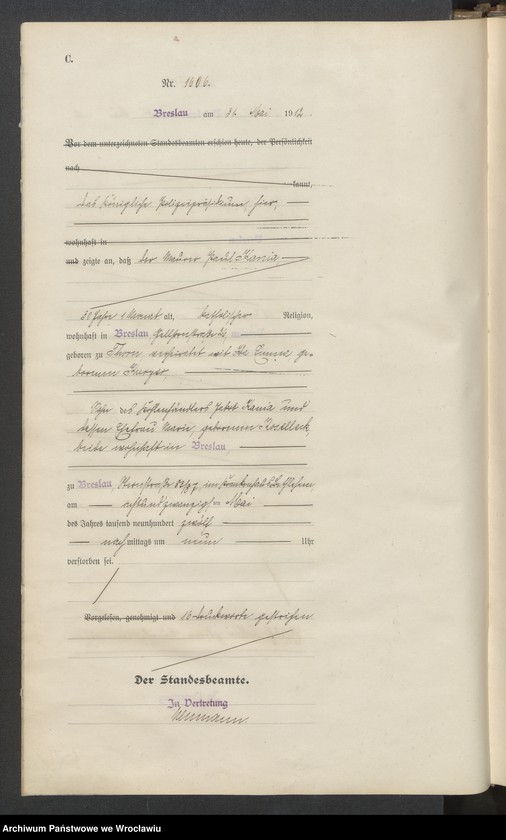 C.
Nr. 1606.
Breslau am 31. Mai 1912.
Vor dem unterzeichneten Standesbeamten erschien heute, der Persönlichkeit
nach
kannt,
das Königliche Polizeipräsidium, hier,
wohnhaft in
und zeigte an, daß der Maurer Paul Kania,
30 Jahr 1 Monat alt, katholischer Religion,
wohnhaft in Breslau
geboren zu Thorn, verheiratet mit geborenen
Sohn des Kohlenhändlers Jakob Kania und
dessen Ehefrau Marie, geborenen
beide wohnhaft in Breslau,
zu Breslau im Krankenhaus Bethlehem,
am achtundzwanzigsten Mai
des Jahres tausend neunhundert zwölf
nachmittags um neun Uhr
verstorben sei.
Vorgelesen, genehmigt und 10 Druckworte gestrichen
Der Standesbeamte.
In Vertretung
Archiwum Państwowe we Wrocławiu